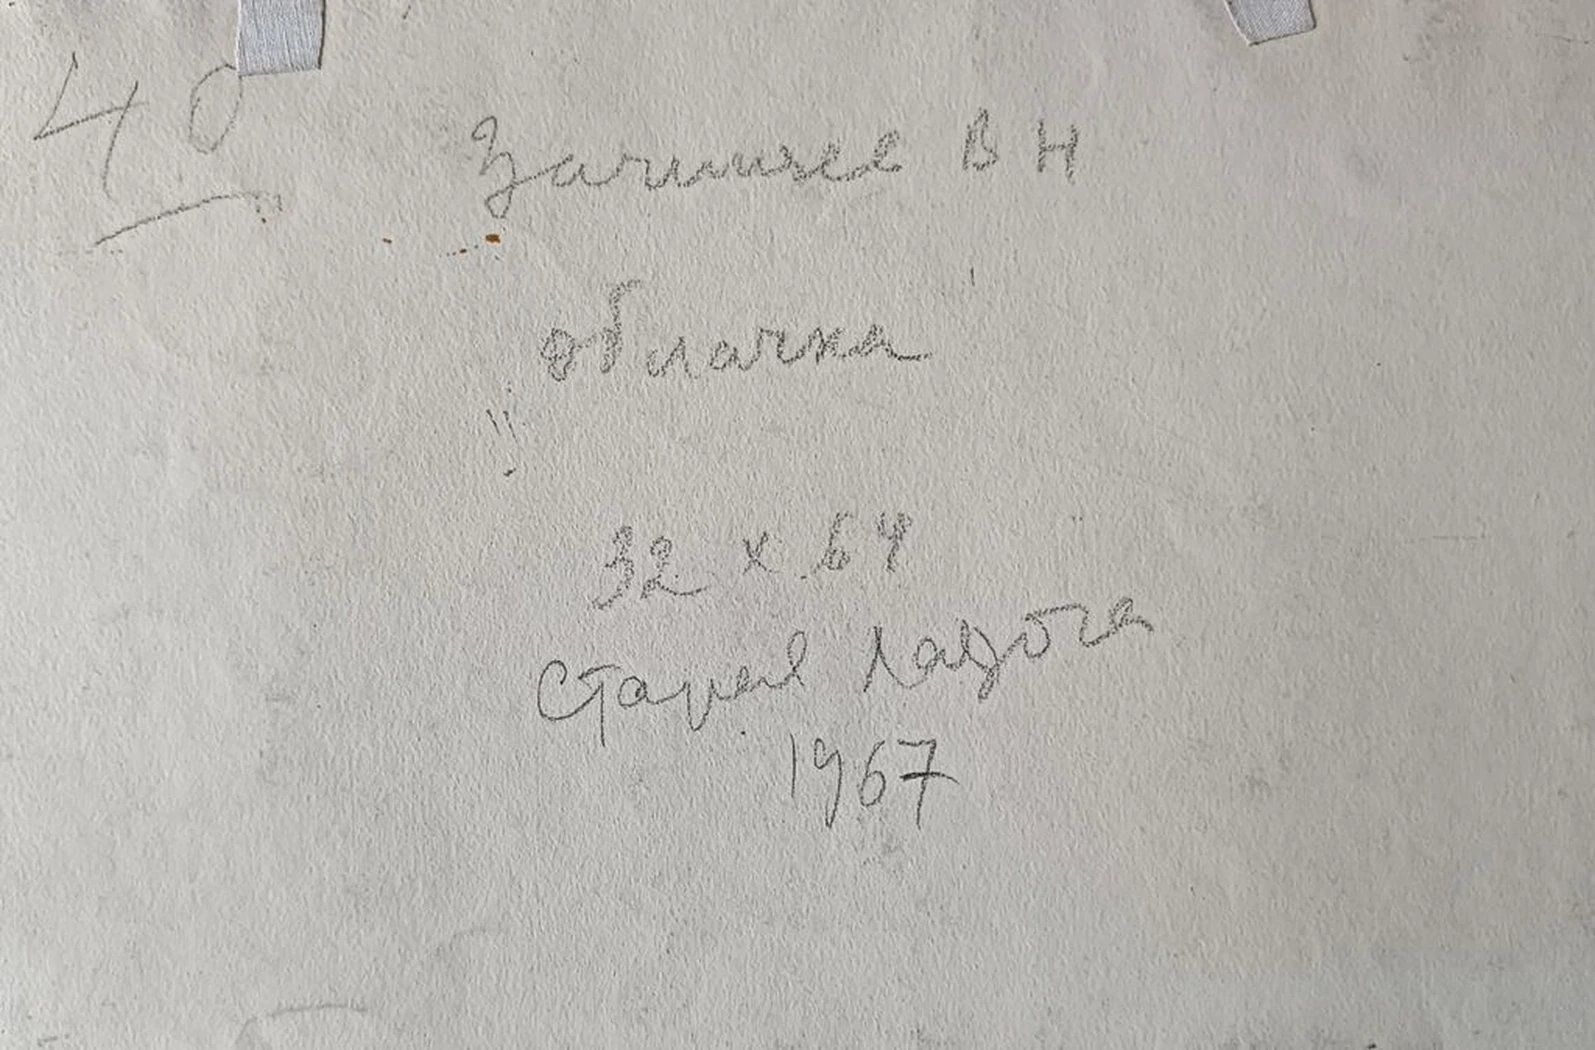 40
В Н
облачка
32 х 64
Старая Ладога
1967